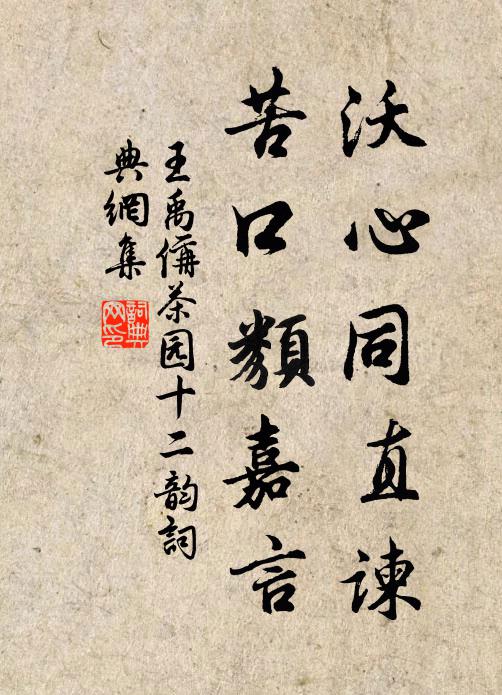 沃心同直諫
苦口類嘉言
王禹偁茶园十二韵詞
典網集
詞典
网印